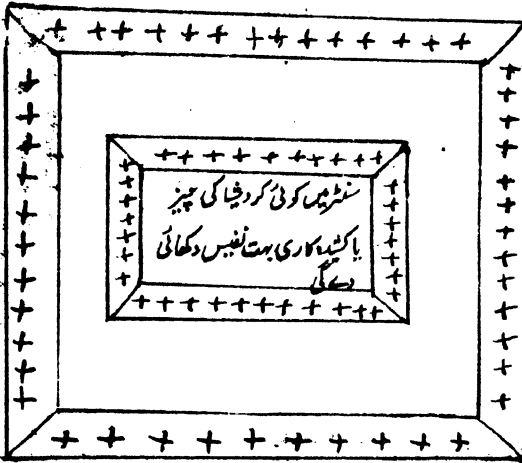 سنٹر میں کوئی کروشیا کی چیز
یا کشیدہ کاری بہت نفیس دکھائی
دے گی